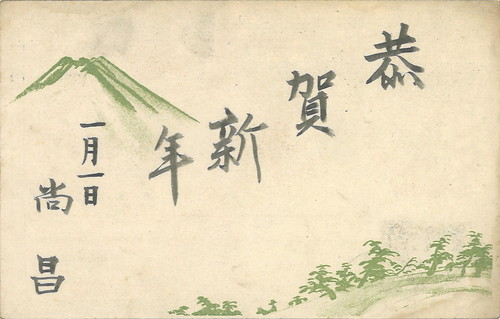 恭賀新年
一月一日
尚昌